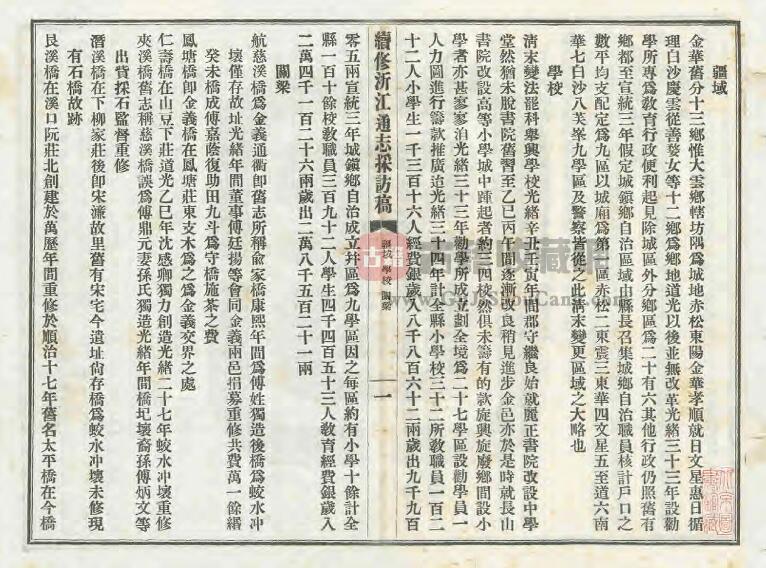 疆域
金華舊分十三鄉惟大雲鄉轄坊隅爲城地赤松東陽金華孝順就日文星惠日循
理白沙慶雲從善婺女等十二鄉爲鄉地道光以後並無改革光緒三十三年設勸
學所專爲教育行政便利起見除城區外分鄉區爲二十有六其他行政仍照舊有
鄉都至宣統三年假定城鎮鄉自治區域由縣長召集城鄉自治職員核計戶口之
數平均支配定爲九區以城廂爲第一區赤松二東震三東華四文星五至道六南
華七白沙八芙峯九學區及警察皆從之此清末變更區域之大略也
學校
清末變法罷科舉興學校光緒辛丑壬寅年間郡守繼良始就麗正書院改設中學
堂然猶未脫書院舊習至乙巳丙午間逐漸改良稍見進步金邑亦於是時就長山
書院改設高等小學城中踵起者約三四校然俱未籌有的款旋興旋廢鄉間設小
學者亦甚寥寥洎光緒三十三年勸學所成立劃全境爲二十七學區設勸學員一
人力圖進行籌款推廣迨光緒三十四年計全縣小學校三十二所教職員一百二
十二人小學生一千三百十六人經費銀歲入八千八百六十二兩歲出九千九百
續修浙江通志採訪稿
疆域 學校 關梁
一
零五兩宣統三年城鎮鄉自治成立幷區爲九學區因之每區約有小學十餘計全
縣一百十餘校教職員三百九十二人學生四千四百五十三人教育經費銀歲入
二萬四千一百二十六兩歲出二萬八千五百二十一兩
關梁
航慈溪橋爲金義通衢卽舊志所稱俞家橋康熙年間爲傅姓獨造後橋爲蛟水冲
壞僅存故址光緒年間董事傅廷揚等會同金義兩邑捐募重修共費萬一餘緡
癸未橋成傅嘉蔭復助田九斗爲守橋施茶之費
鳳塘橋卽金義橋在鳳塘莊東支木爲之爲金義交界之處
仁壽橋在山豆下莊道光乙巳年沈感卿獨力創造光緒二十七年蛟水冲壞重修
夾溪橋舊志稱慈溪橋誤爲傅鼎元妻孫氏獨造光緒年間橋圮壞裔孫傅炳文等
出貲採石監督重修
潛溪橋在下柳家莊後卽宋濂故里舊有宋宅今遺址尙存橋爲蛟水冲壞未修現
有石橋故跡
艮溪橋在溪口阮莊北創建於萬歷年間重修於順治十七年舊名太平橋在今橋
古籍